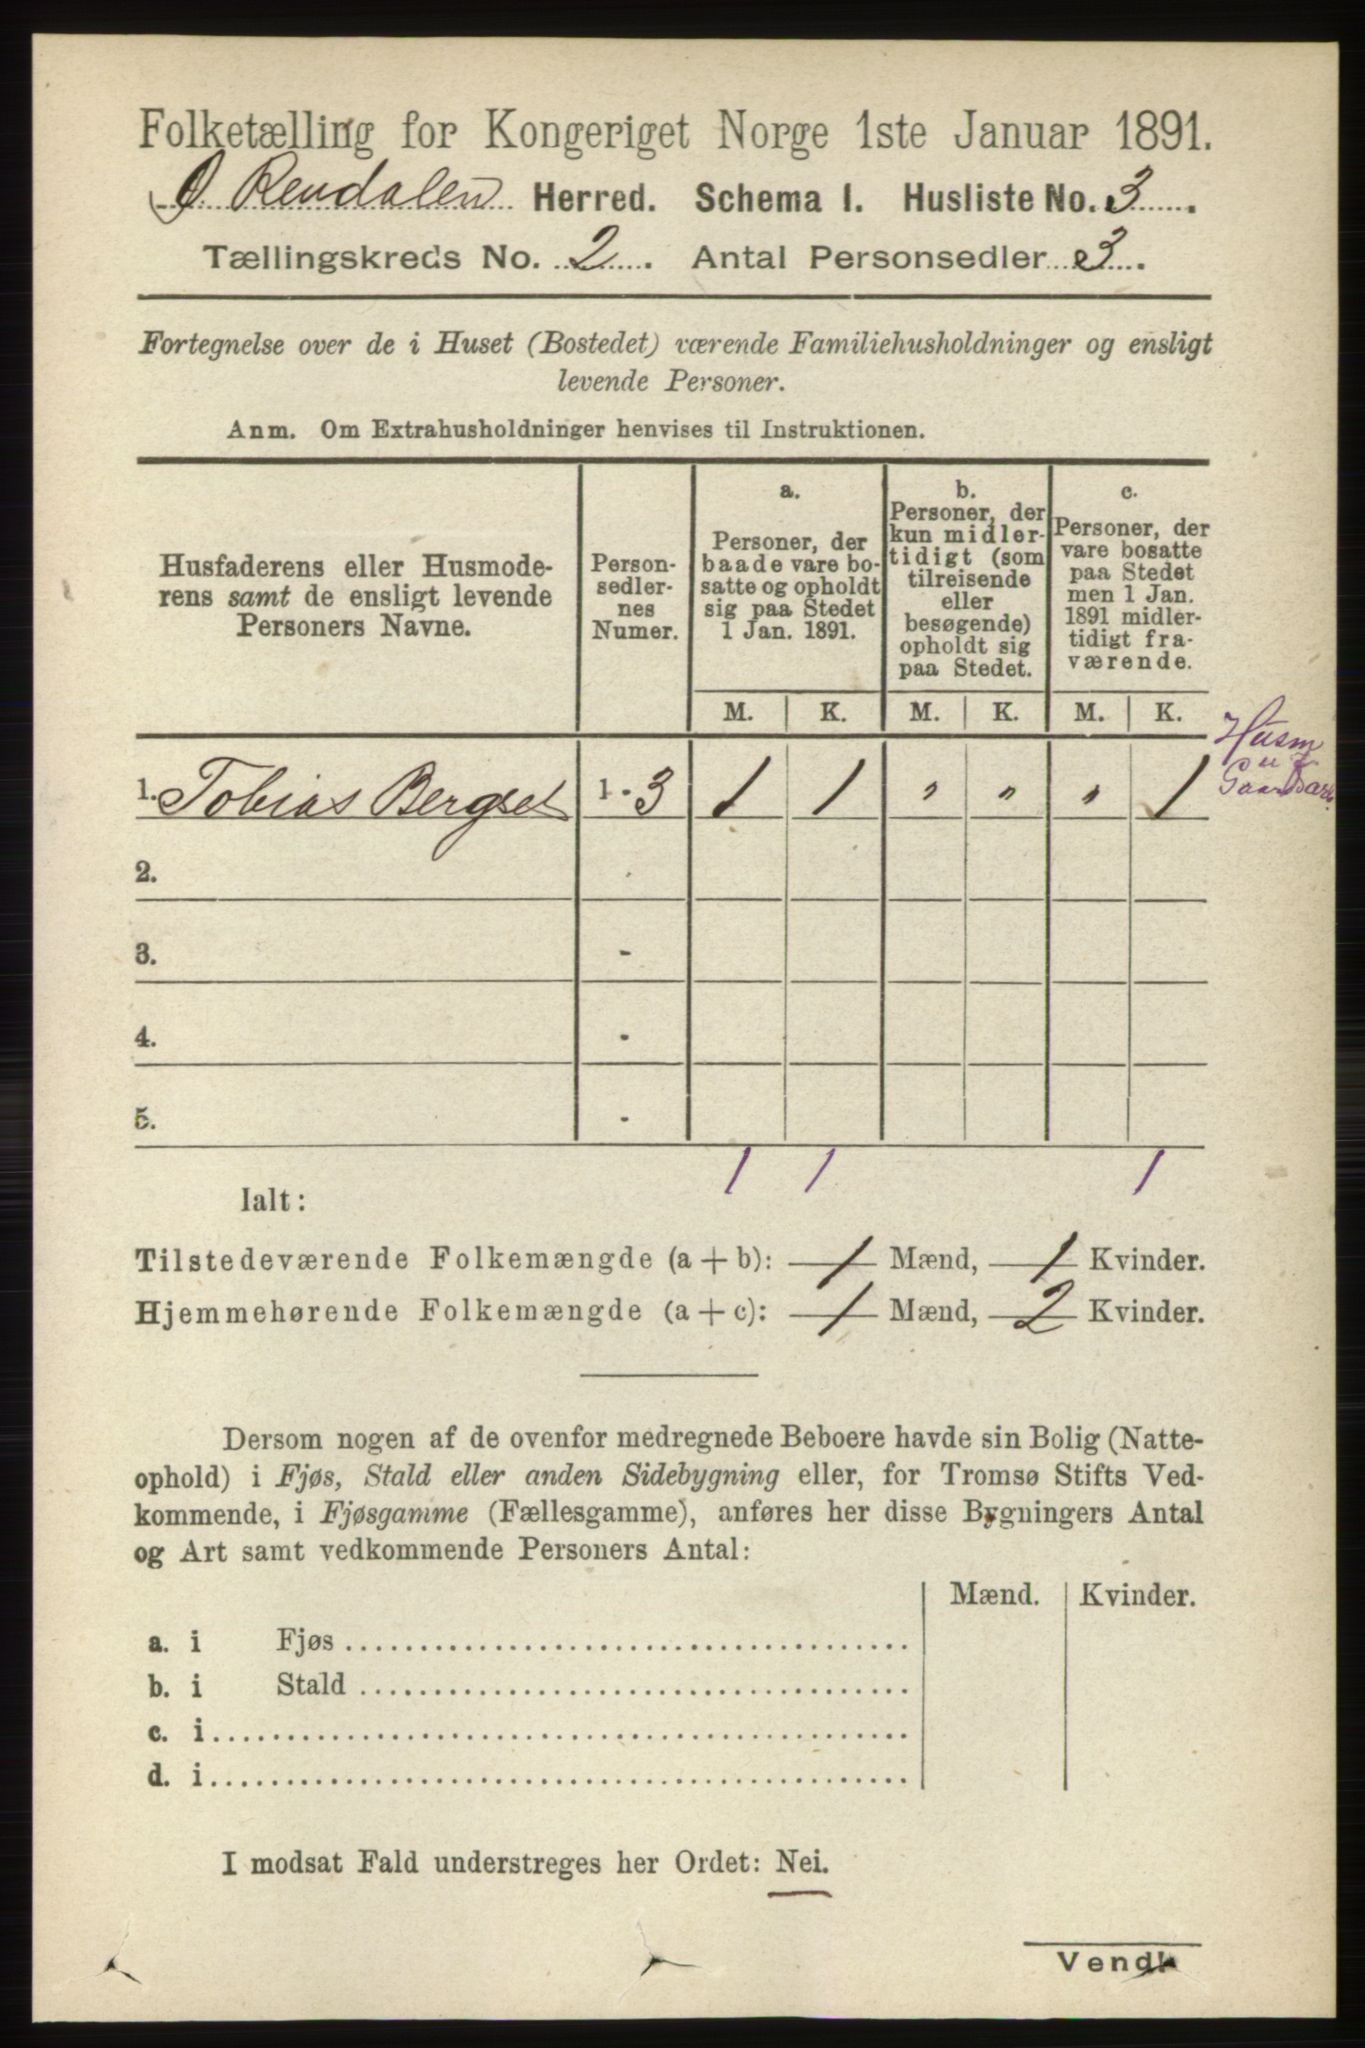 Folketælling for Kongeriget Norge 1ste Januar 1891.
Ø. Rendalen Herred. Schema I. Husliste No. 3.
Tællingskreds No. 2. Antal Personsedler 3.
Fortegnelse over de i Huset (Bostedet) værende Familiehusholdninger og ensligt
levende Personer.
Anm. Om Extrahusholdninger henvises til Instruktionen.
Husfaderens eller Husmode-
rens samt de ensligt levende
Personers Navne.
Person-
sedler-
nes
Numer.
a.
Personer, der
baade vare bo-
satte og opholdt
sig paa Stedet
1 Jan. 1891.
b.
Personer, der
kun midler-
tidigt (som
tilreisende
eller
besøgende)
opholdt sig
paa Stedet.
c.
Personer, der
vare bosatte
paa Stedet
men 1 Jan.
1891 midler-
tidigt fra-
værende.
M. K. M. K. M. K.
Husm
u J
1. Tobias Bergset 1 - 3 1 1 " " " 1
2.
3. -
4. -
5. -
1 1 1
Ialt:
Tilstedeværende Folkemængde (a + b): 1 Mænd, 1 Kvinder.
Hjemmehørende Folkemængde (a + c): 1 Mænd, 2 Kvinder.
Dersom nogen af de ovenfor medregnede Beboere havde sin Bolig (Natte-
ophold) i Fjøs, Stald eller anden Sidebygning eller, for Tromsø Stifts Ved-
kommende, i Fjøsgamme (Fællesgamme), anføres her disse Bygningers Antal
og Art samt vedkommende Personers Antal:
Mænd. Kvinder.
a. i Fjøs
b. i Stald
c. i
d. i
I modsat Fald understreges her Ordet: Nei.
Vend!